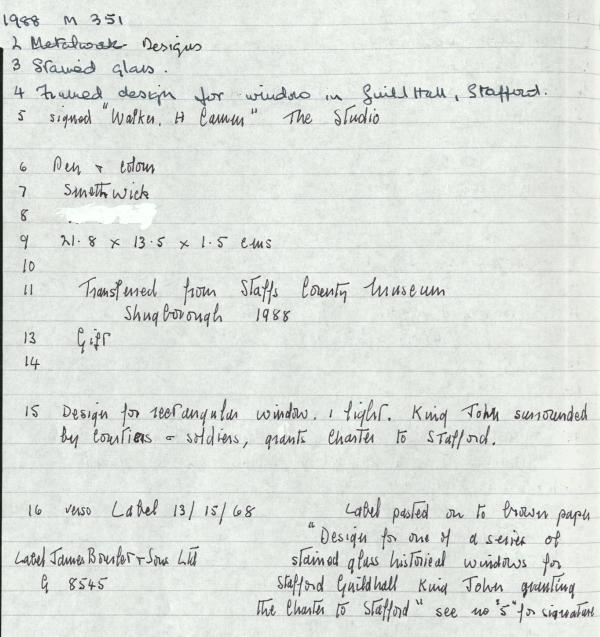 1988 M 351
2 Metalwork Designs
3 Stained glass.
4 Framed design for window in Guild Hall, Stafford.
5 signed "Walter. H Camm" The Studio
6 Pen + colour
7 Smethwick
8
9 21.8 x 13.5 x 1.5 cms
10
11 Transferred from Staffs County Museum
Shugborough 1988
13 Gift
14
15 Design for rectangular window. 1 light. King John surrounded
by courtiers + soldiers, grants Charter to Stafford.
16 verso Label 13/15/68 Label pasted on to brown paper
"Design for one of a series of
Label James Bourlet + Sons Ltd stained glass historical windows for
G 8545 Stafford Guildhall King John granting
the Charter to Stafford" see no "5" for signature